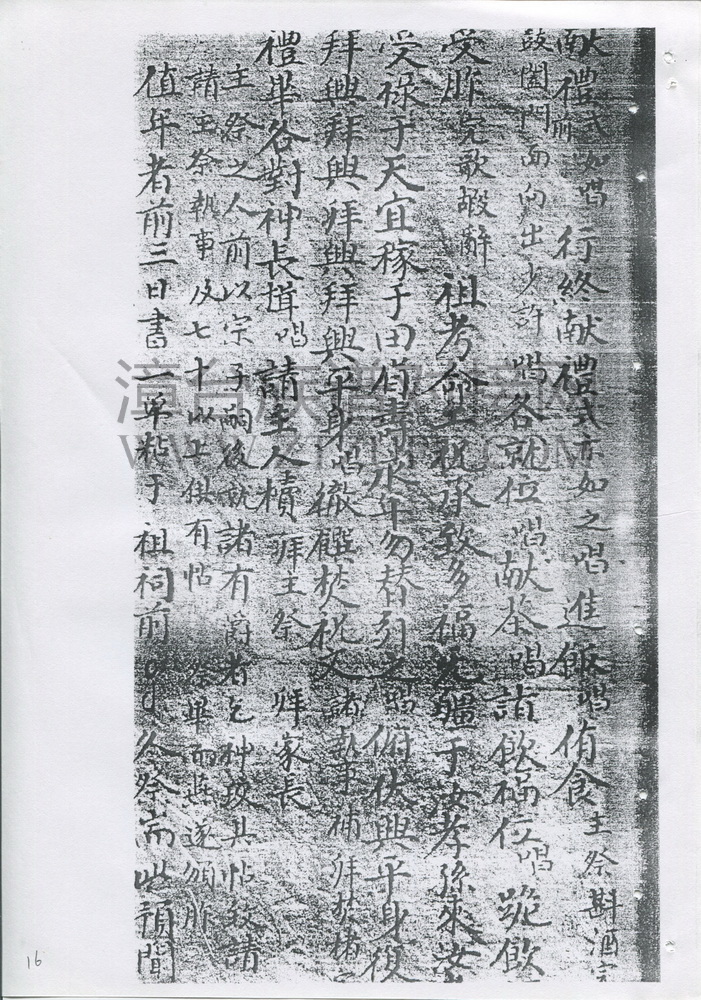 献禮式如前唱 行終献禮式亦如之唱 進飯唱 侑食主祭斟酒
鼓闔門面向出少許唱各就位唱献茶唱詣飲福位唱 跪飲
受胙 歌嘏辭 祖考命工祝承致多福无疆于汝孝孫來汝
受祿于天宜稼于田眉壽永年勿替引之唱俯伏興平身復
拜興拜興拜興拜興平身唱徹饌焚祝文諸執事補拜於
禮畢各對神長揖唱請主人櫝 拜主祭 拜家長
主祭之人前以宗子嗣後就諸有爵者 神 其帖 請
請主祭執事及七十以上俱有帖 祭畢而 遂頒胙
值年者前三日書一單粘于祖祠前 祭 此預聞
漳台族譜對接
16